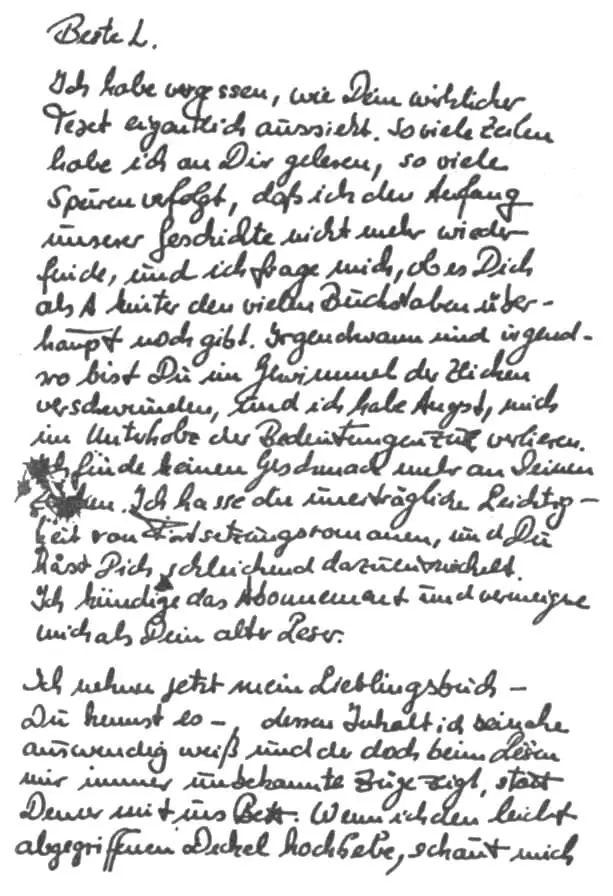 Beste L.
Ich habe vergessen, wie Dein wirklicher
Text eigentlich aussieht. So viele Zeilen
habe ich an Dir gelesen, so viele
Spuren verfolgt, daß ich den Anfang
unserer Geschichte nicht mehr wieder
finde, und ich frage mich, ob es Dich
als A hinter den vielen Buchstaben über-
haupt noch gibt. Irgendwann und irgend-
wo bist Du im Gewimmel der Zeichen
verschwunden, und ich habe Angst, mich
im Unterholz der Bedeutungen zu verlieren.
Ich finde keinen Geschmack mehr an Deinen
Ich hasse die unerträgliche Leichtig-
keit von Fortsetzungsromanen, und Du
hast Dich schleichend dazu entwickelt.
Ich kündige das Abonnement und verneige
mich als Dein alter Leser.
Ich nehme jetzt mein Lieblingsbuch -
Du kennst es -, dessen Inhalt ich beinahe
auswendig weiß und der doch beim Lesen
mir immer unbekannte Züge zeigt, statt
Deiner mit ins Bett. Wenn ich den leicht
abgegriffenen Deckel hochhebe, schaut mich